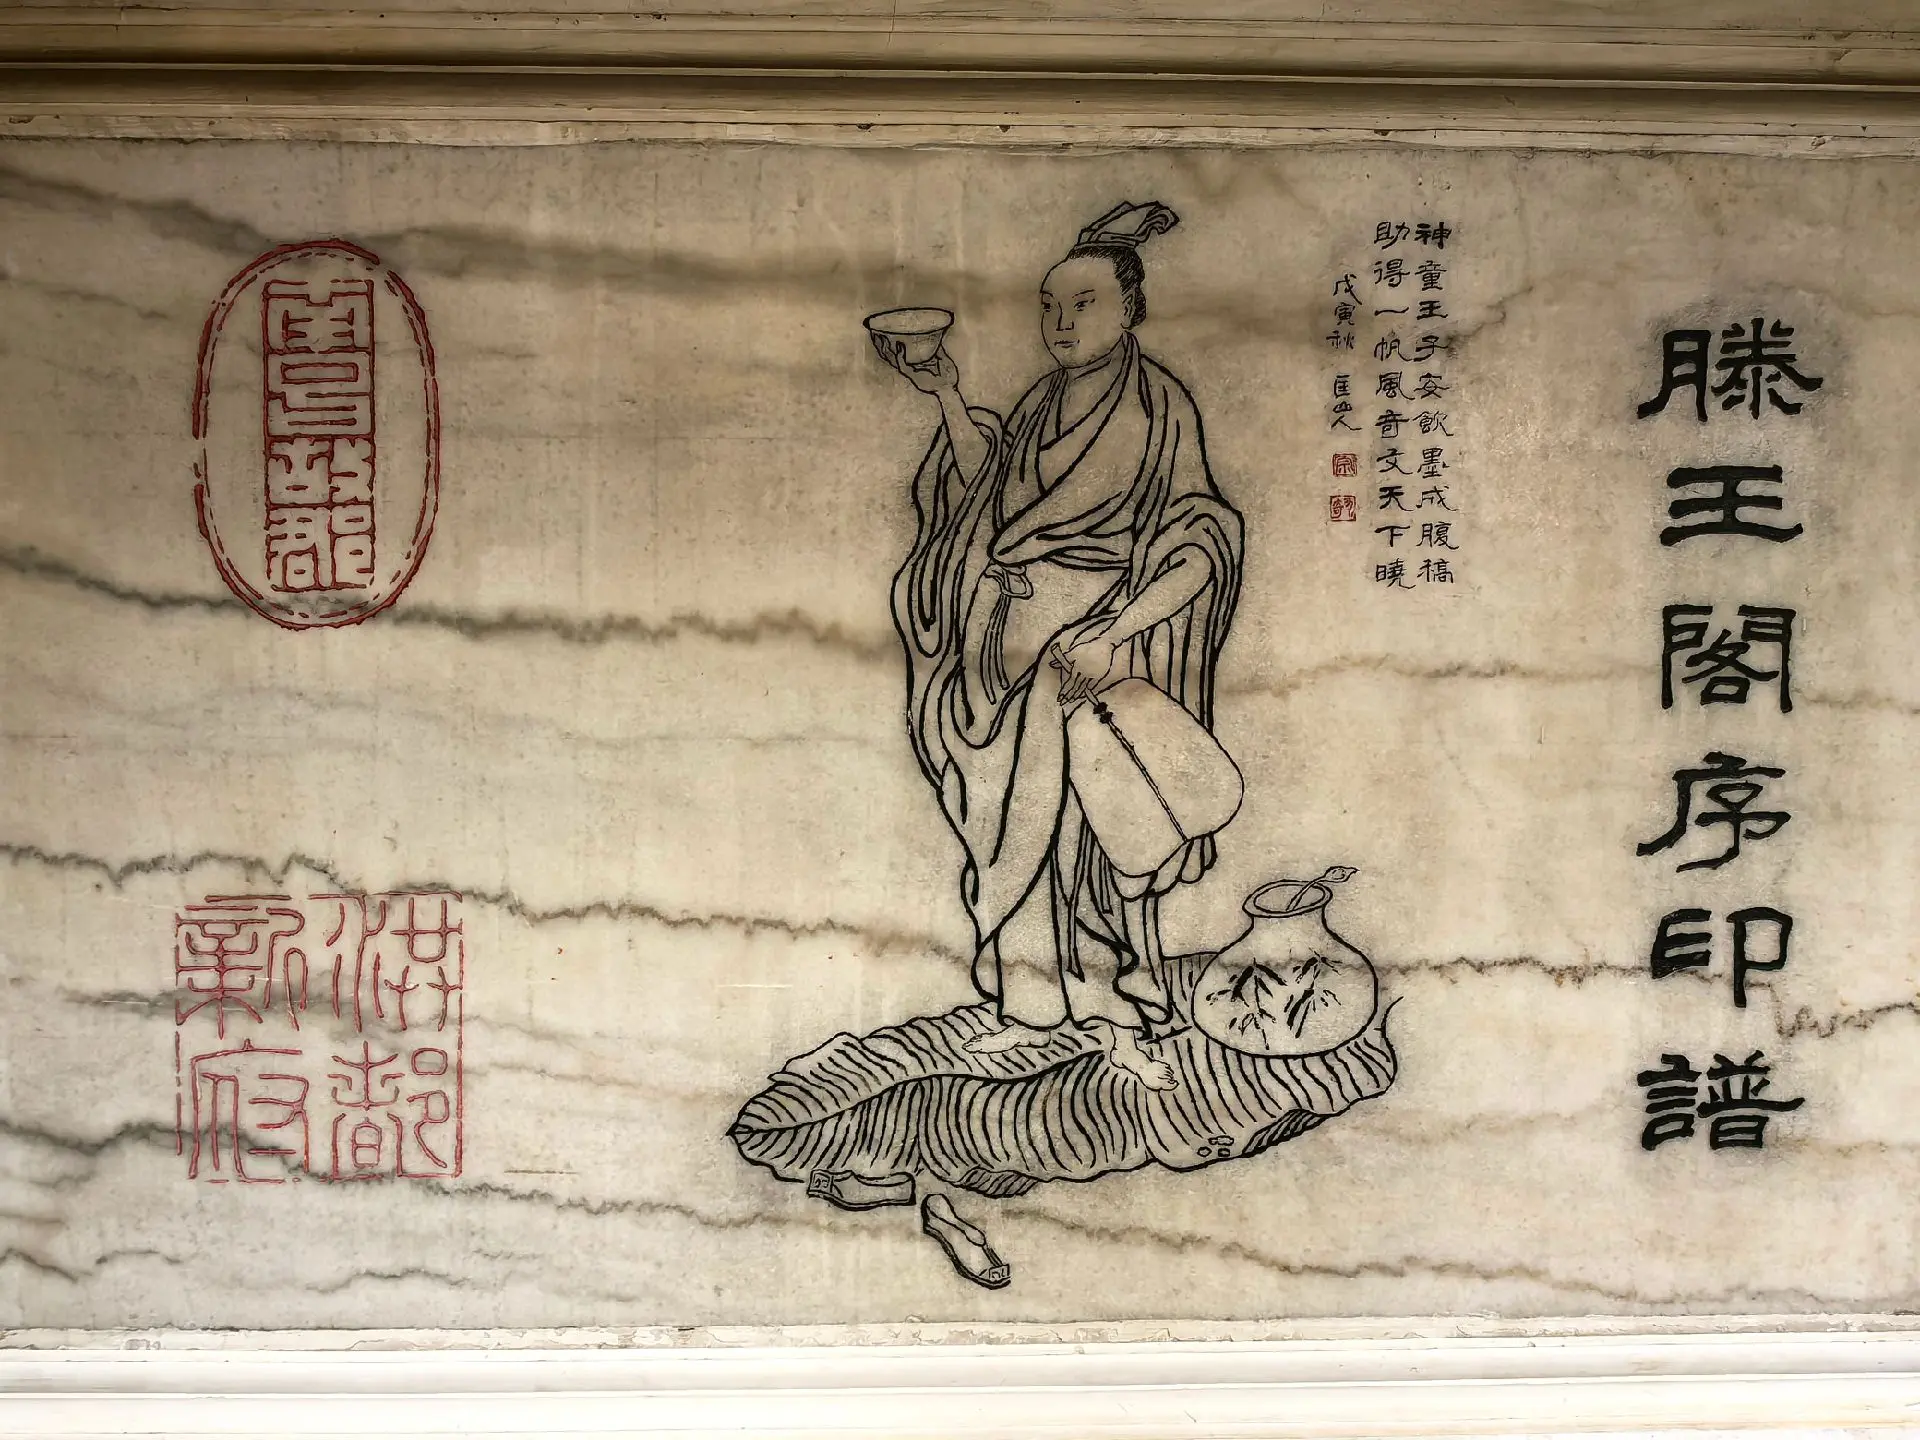 滕王閣序印譜
神童王子安飲墨成腹稿
助得一帆風竒文天下曉
戊寅秋 匡山人
南昌故郡
洪都新府